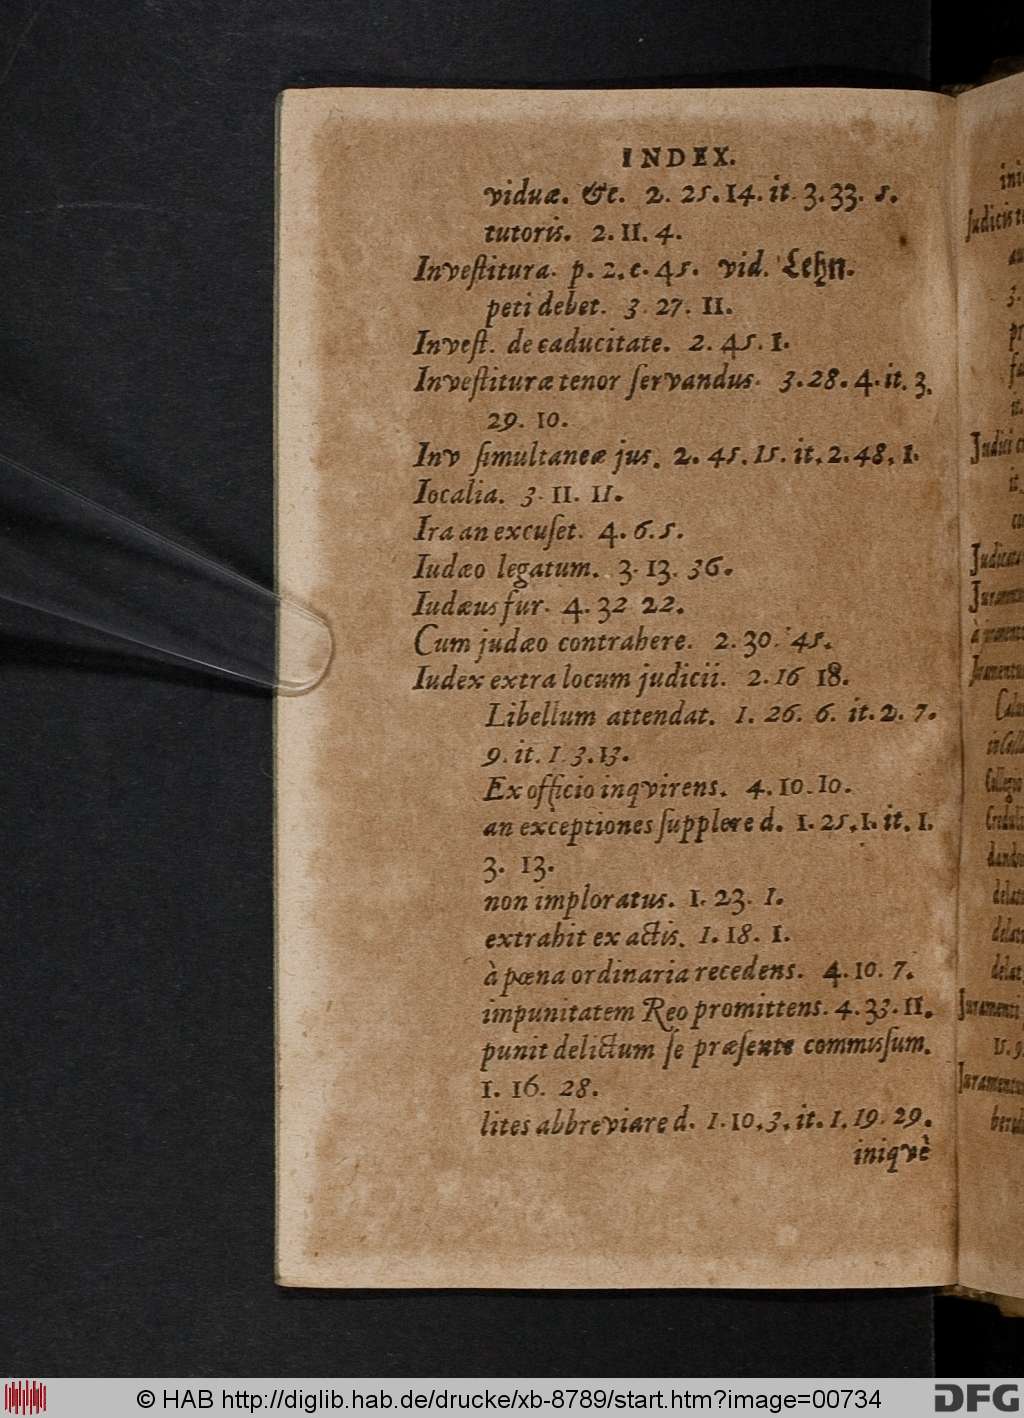 INDEX.
viduæ. &c. 2. 25. 14. it 3. 33. 5.
tutoris. 2. 11. 4.
Inveſtitura. p. 2. c. 45. vid. Lehn.
peti debet. 3. 27. 11.
Inveſt. de caducitate. 2. 45. 1.
Inveſtituræ tenor ſervandus. 3. 28. 4. it. 3.
29. 10.
Inv ſimultaneæ jus. 2. 45. 15. it. 2. 48. 1.
Iocalia. 3. 11. 11.
Ira an excuſet. 4. 6. 5.
Iudæo legatum. 3. 13. 36.
Iudæus fur. 4. 32 22.
Cum judæo contrahere. 2. 30. 45.
Iudex extra locum judicii. 2. 16 18.
Libellum attendat. 1. 26. 6. it. 2. 7.
9. it. 1 3. 13.
Ex officio inqvirens. 4. 10. 10.
an exceptiones ſupplere d. 1. 25. 1. it. 1.
3. 13.
non imploratus. 1. 23. 1.
extrahit ex actis. 1. 18. 1.
à pœna ordinaria recedens. 4. 10. 7.
impunitatem Reo promittens. 4. 33. 11.
punit delictum ſe præſente commiſſum.
1. 16. 28.
lites abbreviare d. 1. 10. 3. it. 1. 19. 29.
iniqvè
Judicis
Judici
it.
Juramenti
15. 9
© HAB http://diglib.hab.de/drucke/xb-8789/start.htm?image=00734
DFG